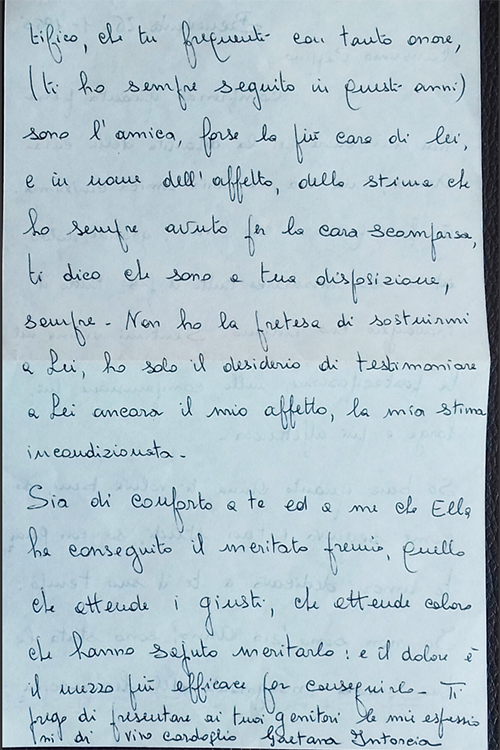 tifico, che tu frequenti con tanto onore,
(ti ho sempre seguito in questi anni)
sono l'amica, forse la più cara di lei,
e in nome dell'affetto, della stima che
ho sempre avuto per la cara scomparsa,
ti dico che sono a tua disposizione,
sempre - Non ho la pretesa di sostuirmi
a Lei, ho solo il desiderio di testimoniare
a Lei ancora il mio affetto, la mia stima
incondizionata -
Sia di conforto a te ed a me che Ella
ha conseguito il meritato premio, quello
che attende i giusti, che attende coloro
che hanno saputo meritarlo: e il dolore è
il mezzo più efficace per conseguirlo - Ti
prego di presentare ai tuoi genitori le mie espressio
ni di vivo cordoglio Gaetana Intorcia